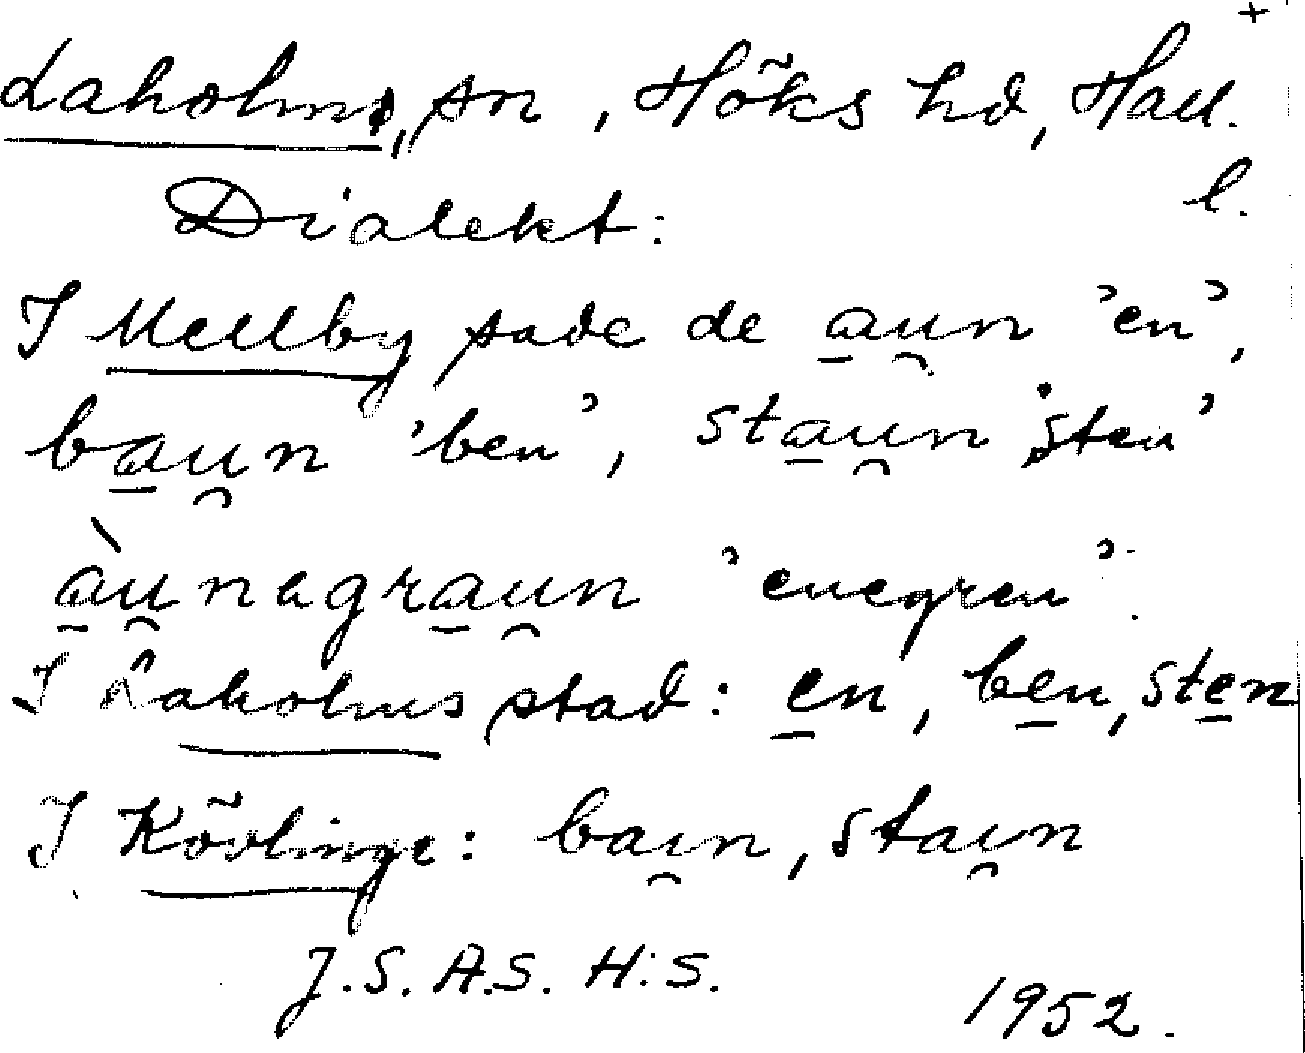 +
Laholms, sn, Höks hd, Hall.
l.
Dialekt:
I Mellby sade de a̱u̯n 'en',
ba̱u̯n 'ben', sta̱u̯n 'sten'
à̱u̯nagra̱u̯n 'enegren'.
I Laholms stad: e̱n, be̱n, ste̱n
I Kövlinge: baı̯n, staı̯n
J.S. A.S. H.S.
1952.